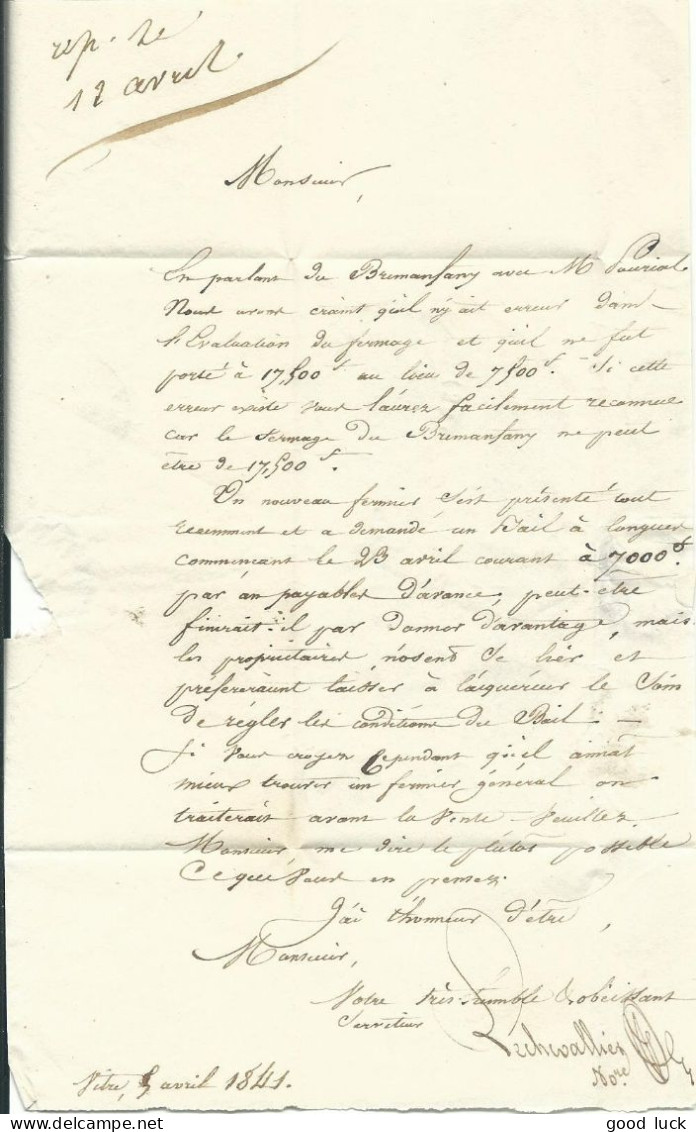 rep. le
12 avril.
Monsieur,
En parlant du Bremanfany avec Mr Pouriol.
Nous avons craint qu'il n'y ait erreur dans
l'Evaluation du fermage et qu'il ne fut
porté à 17,500f au lieu de 7500f. Si cette
erreur existe vous l'aurez facilement reconnue
car le fermage du Bremanfany ne peut
être de 17,500f.
Un nouveau fermier s'est présenté tout
recemment et a demandé un Bail à longues
commencant le 23 avril courant à 7000f.
par an payables d'avance, peut-etre
finirait-il par donner d'avantage, mais
les propriétaires n'osent se lier et
préfereraient laisser à l'aquéreur le soin
de régler les conditions du Bail. —
Si vous croyez cependant qu'il aimat
mieux trouver un fermier général on
traiterait avant la vente. Veuillez
Monsieur me dire le plutot possible
Ce que vous en pensez.
J'ai l'honneur d'être,
Monsieur,
Votre très humble & obéissant
Serviteur
Lechevallier
Nore
Vitré, 5 avril 1841.
good luck